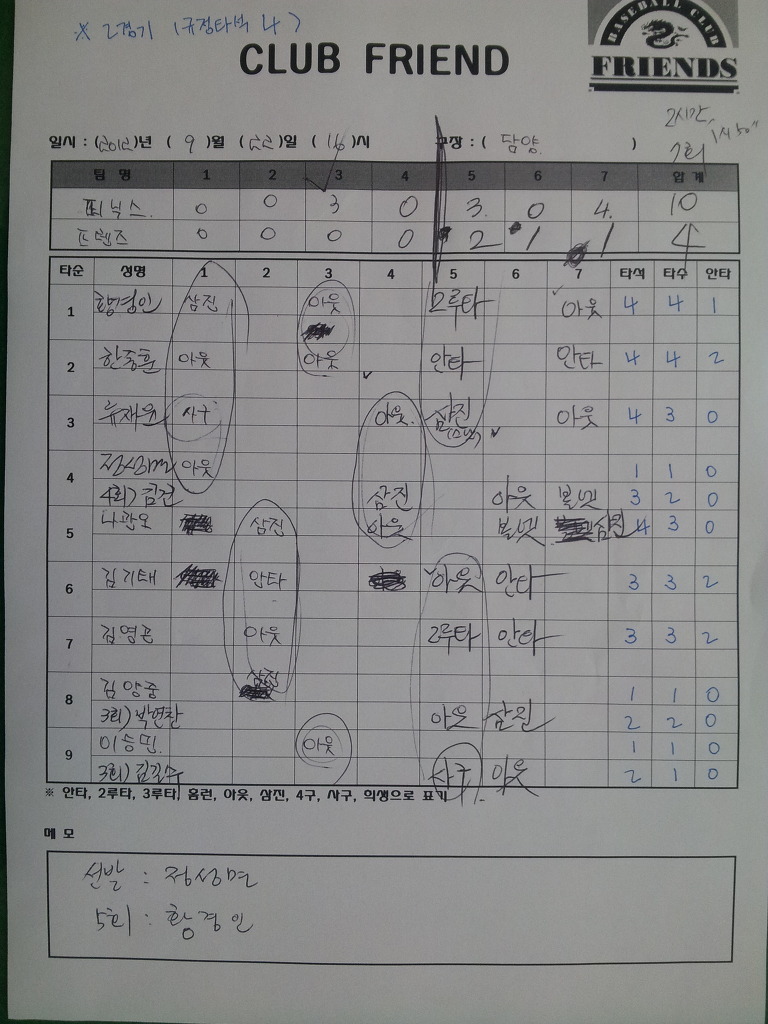 ※ 2경기 (규정타석 4)
BASEBALL CLUB
FRIENDS
CLUB FRIEND
2시간, 1시50"
7회
일시 : (2012)년 ( 9 )월 (22)일 ( 16 )시 구장 : ( 담양 )
팀 명 1 2 3 4 5 6 7 합 계
피닉스. 0 0 3 0 3. 0 4. 10
프렌즈 0 0 0 0 2 1 1 4
타순 성명 1 2 3 4 5 6 7 타석 타수 안타
1 황경인 삼진 아웃 2루타 아웃 4 4 1
2 한종훈 아웃 아웃 안타 안타 4 4 2
3 류재윤 사구 아웃. 삼진 아웃 4 3 0
4 정성면 아웃 1 1 0
4회) 김건 삼진 아웃 볼넷 3 2 0
5 나관오 삼진 아웃 볼넷 삼진 4 3 0
6 김기태 안타 아웃 안타 3 3 2
7 김영곤 아웃 2루타 안타 3 3 2
8 김양중 삼진 1 1 0
3회) 박현찬 아웃 삼진 2 2 0
9 이승민. 아웃 1 1 0
3회) 김길수 사구 아웃 2 1 0
※ 안타, 2루타, 3루타, 홈런, 아웃, 삼진, 4구, 사구, 희생으로 표기
메 모
선발 : 정성면
5회 : 황경인